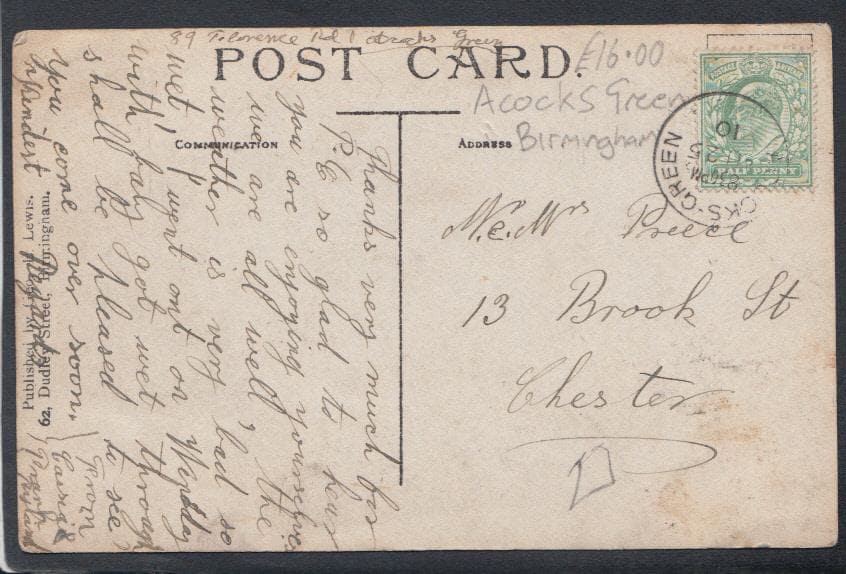 89 Florence Rd Acocks Green
POST CARD.
£16.00
Acocks Green
Birmingham
COMMUNICATION
ADDRESS
HALF PENNY
CKS. GREEN
10
Mr & Mrs Preece
13 Brook St
Chester
Thanks very much for
P.C so glad to hear
you are enjoying yourselves
we are all well, the
weather is very bad so
wet I went out on
with baby got wet through
shall be pleased to see
you come over soon.
Kindest Regards
From
Published by Lewis.
62, Dudley Street, Birmingham.